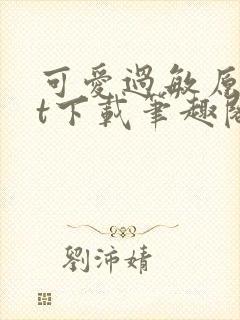 可愛過敏原
t下載筆趣閣
劉沛婧